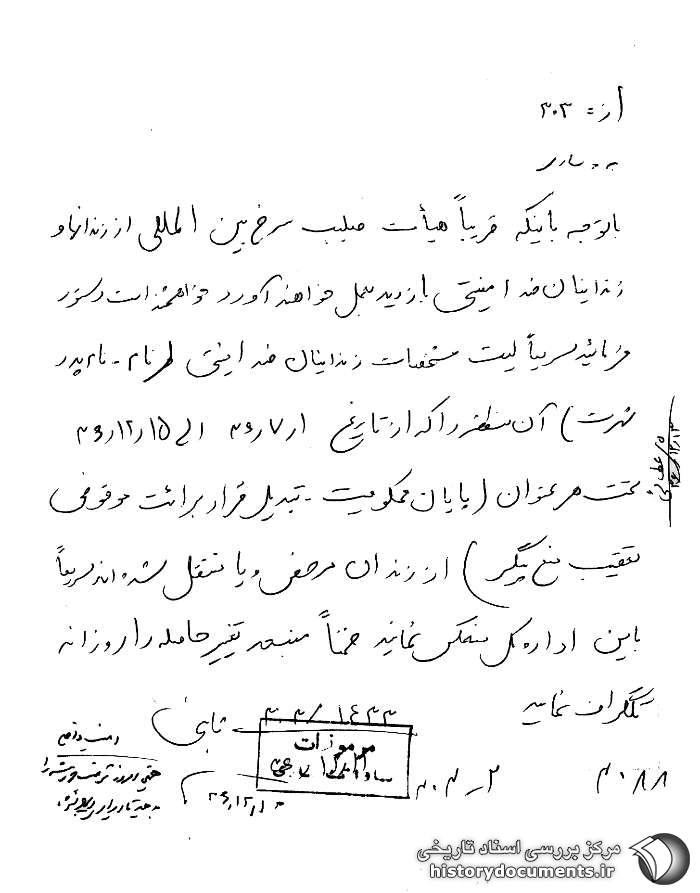 از = ۳۰۳
به = ساری
باتوجه باینکه قریباً هیأت صلیب سرخ بین المللی از زندانها و
زندانیان ضد امنیتی بازدید بعمل خواهند آورد خواهشمند است دستور
فرمائید سریعاً لیست مشخصات زندانیان ضد امنیتی (نام - نام پدر
شهرت) آن منطقه را که از تاریخ ۳۶٫۷٫۱ الی ۳۶٫۱۲٫۱۵
تحت هر عنوان (پایان محکومیت - تبدیل قرار برائت موقوفی
تعقیب منع پیگر) از زندان مرخص و یا منتقل شده اند سریعاً
باین اداره کل منعکس نمایند ضمناً منبعد تغییر حاصله را روزانه
تلگراف نمایند
۳۰۲/۱۶۳۳ ثابتی
مرموزات
۳۰۸۸
۳۶٫۱۲٫۱۰
مرکز بررسی اسناد تاریخی
historydocuments.ir